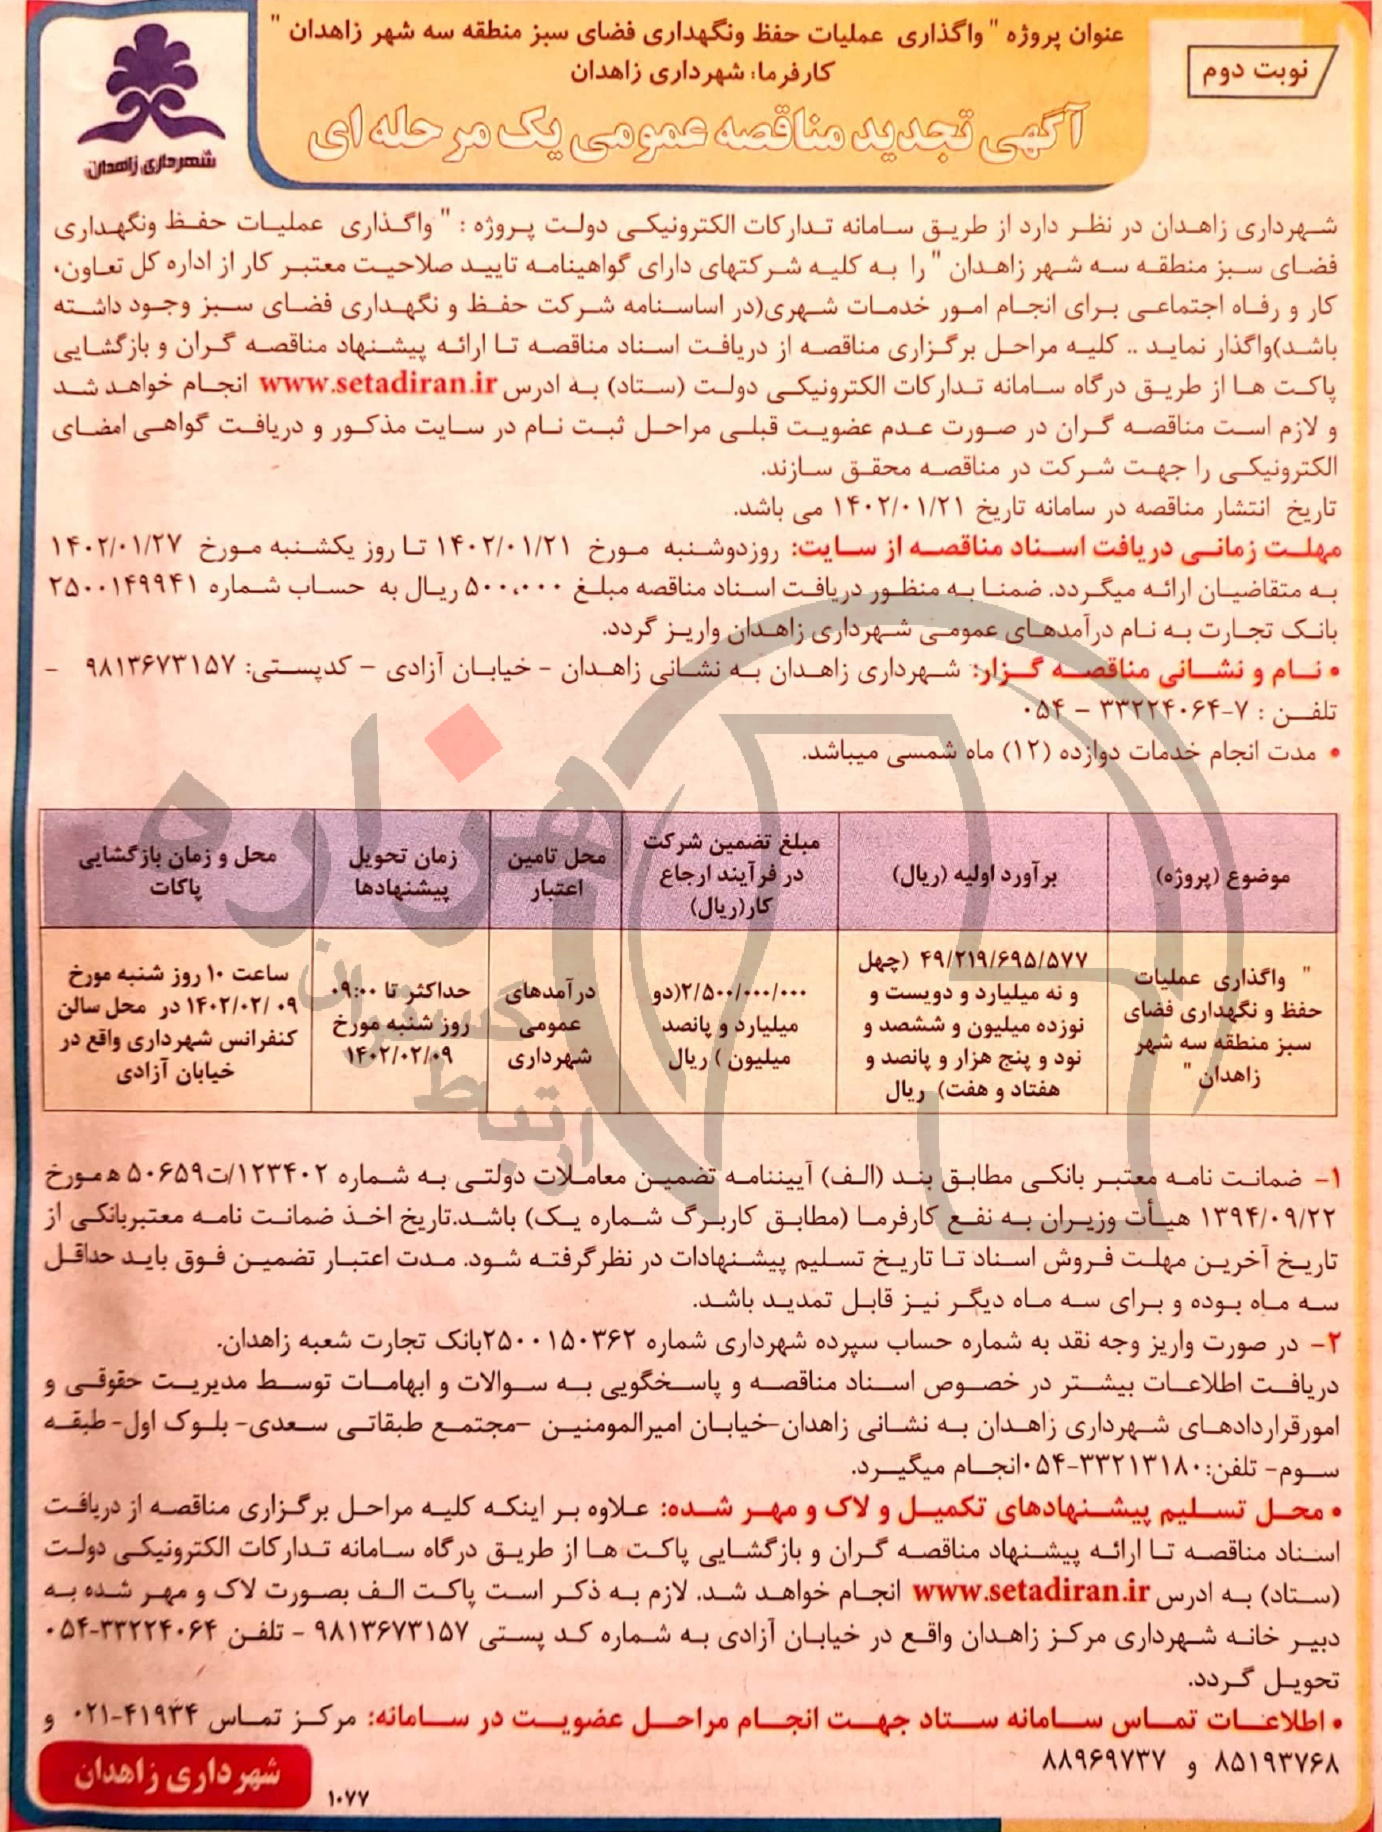 عنوان پروژه " واگذاری عملیات حفظ ونگهداری فضای سبز منطقه سه شهر زاهدان "
نوبت دوم
کارفرما: شهرداری زاهدان
آگهی تجدید مناقصه عمومی یک مرحله ای
شهرداری زاهدان
شهرداری زاهدان در نظر دارد از طریق سامانه تدارکات الکترونیکی دولت پروژه : " واگذاری عملیات حفظ ونگهداری
فضای سبز منطقه سه شهر زاهدان " را به کلیه شرکتهای دارای گواهینامه تایید صلاحیت معتبر کار از اداره کل تعاون،
کار و رفاه اجتماعی برای انجام امور خدمات شهری(در اساسنامه شرکت حفظ و نگهداری فضای سبز وجود داشته
باشد)واگذار نماید .. کلیه مراحل برگزاری مناقصه از دریافت اسناد مناقصه تا ارائه پیشنهاد مناقصه گران و بازگشایی
پاکت ها از طریق درگاه سامانه تدارکات الکترونیکی دولت (ستاد) به ادرس www.setadiran.ir انجام خواهد شد
و لازم است مناقصه گران در صورت عدم عضویت قبلی مراحل ثبت نام در سایت مذکور و دریافت گواهی امضای
الکترونیکی را جهت شرکت در مناقصه محقق سازند.
تاریخ انتشار مناقصه در سامانه تاریخ ۱۴۰۲/۰۱/۲۱ می باشد.
مهلت زمانی دریافت اسناد مناقصه از سایت: روزدوشنبه مورخ ۱۴۰۲/۰۱/۲۱ تا روز یکشنبه مورخ ۱۴۰۲/۰۱/۲۷
به متقاضیان ارائه میگردد. ضمنا به منظور دریافت اسناد مناقصه مبلغ ۵۰۰،۰۰۰ ریال به حساب شماره ۲۵۰۰۱۴۹۹۴۱
بانک تجارت به نام درآمدهای عمومی شهرداری زاهدان واریز گردد.
• نام و نشانی مناقصه گزار: شهرداری زاهدان به نشانی زاهدان - خیابان آزادی – کدپستی: ۹۸۱۳۶۷۳۱۵۷ -
تلفن : ۷-۳۳۲۲۴۰۶۴ – ۰۵۴
• مدت انجام خدمات دوازده (۱۲) ماه شمسی میباشد.
موضوع (پروژه)
برآورد اولیه (ریال)
مبلغ تضمین شرکت
در فرآیند ارجاع
کار(ریال)
محل تامین
اعتبار
زمان تحویل
پیشنهادها
محل و زمان بازگشایی
پاکات
" واگذاری عملیات
حفظ و نگهداری فضای
سبز منطقه سه شهر
زاهدان "
۴۹/۲۱۹/۶۹۵/۵۷۷ (چهل
و نه میلیارد و دویست و
نوزده میلیون و ششصد و
نود و پنج هزار و پانصد و
هفتاد و هفت) ریال
۲/۵۰۰/۰۰۰/۰۰۰(دو
میلیارد و پانصد
میلیون ) ریال
درآمدهای
عمومی
شهرداری
حداکثر تا ۰۹:۰۰
روز شنبه مورخ
۱۴۰۲/۰۲/۰۹
ساعت ۱۰ روز شنبه مورخ
۱۴۰۲/۰۲/ ۰۹ در محل سالن
کنفرانس شهرداری واقع در
خیابان آزادی
هزاره
گستران
ارتباط
۱- ضمانت نامه معتبر بانکی مطابق بند (الف) آییننامه تضمین معاملات دولتی به شماره ۱۲۳۴۰۲/ت۵۰۶۵۹ ه مورخ
۱۳۹۴/۰۹/۲۲ هیأت وزیران به نفع کارفرما (مطابق کاربرگ شماره یک) باشد.تاریخ اخذ ضمانت نامه معتبربانکی از
تاریخ آخرین مهلت فروش اسناد تا تاریخ تسلیم پیشنهادات در نظرگرفته شود. مدت اعتبار تضمین فوق باید حداقل
سه ماه بوده و برای سه ماه دیگر نیز قابل تمدید باشد.
۲- در صورت واریز وجه نقد به شماره حساب سپرده شهرداری شماره ۲۵۰۰۱۵۰۳۶۲بانک تجارت شعبه زاهدان.
دریافت اطلاعات بیشتر در خصوص اسناد مناقصه و پاسخگویی به سوالات و ابهامات توسط مدیریت حقوقی و
امورقراردادهای شهرداری زاهدان به نشانی زاهدان-خیابان امیرالمومنین –مجتمع طبقاتی سعدی- بلوک اول- طبقه
سوم- تلفن:۳۳۲۱۳۱۸۰-۰۵۴انجام میگیرد.
• محل تسلیم پیشنهادهای تکمیل و لاک و مهر شده: علاوه بر اینکه کلیه مراحل برگزاری مناقصه از دریافت
اسناد مناقصه تا ارائه پیشنهاد مناقصه گران و بازگشایی پاکت ها از طریق درگاه سامانه تدارکات الکترونیکی دولت
(ستاد) به ادرس www.setadiran.ir انجام خواهد شد. لازم به ذکر است پاکت الف بصورت لاک و مهر شده به
دبیر خانه شهرداری مرکز زاهدان واقع در خیابان آزادی به شماره کد پستی ۹۸۱۳۶۷۳۱۵۷ - تلفن ۳۳۲۲۴۰۶۴-۰۵۴
تحویل گردد.
• اطلاعات تماس سامانه ستاد جهت انجام مراحل عضویت در سامانه: مرکز تماس ۴۱۹۳۴-۰۲۱ و
۸۵۱۹۳۷۶۸ و ۸۸۹۶۹۷۳۷
شهرداری زاهدان
۱۰۷۷